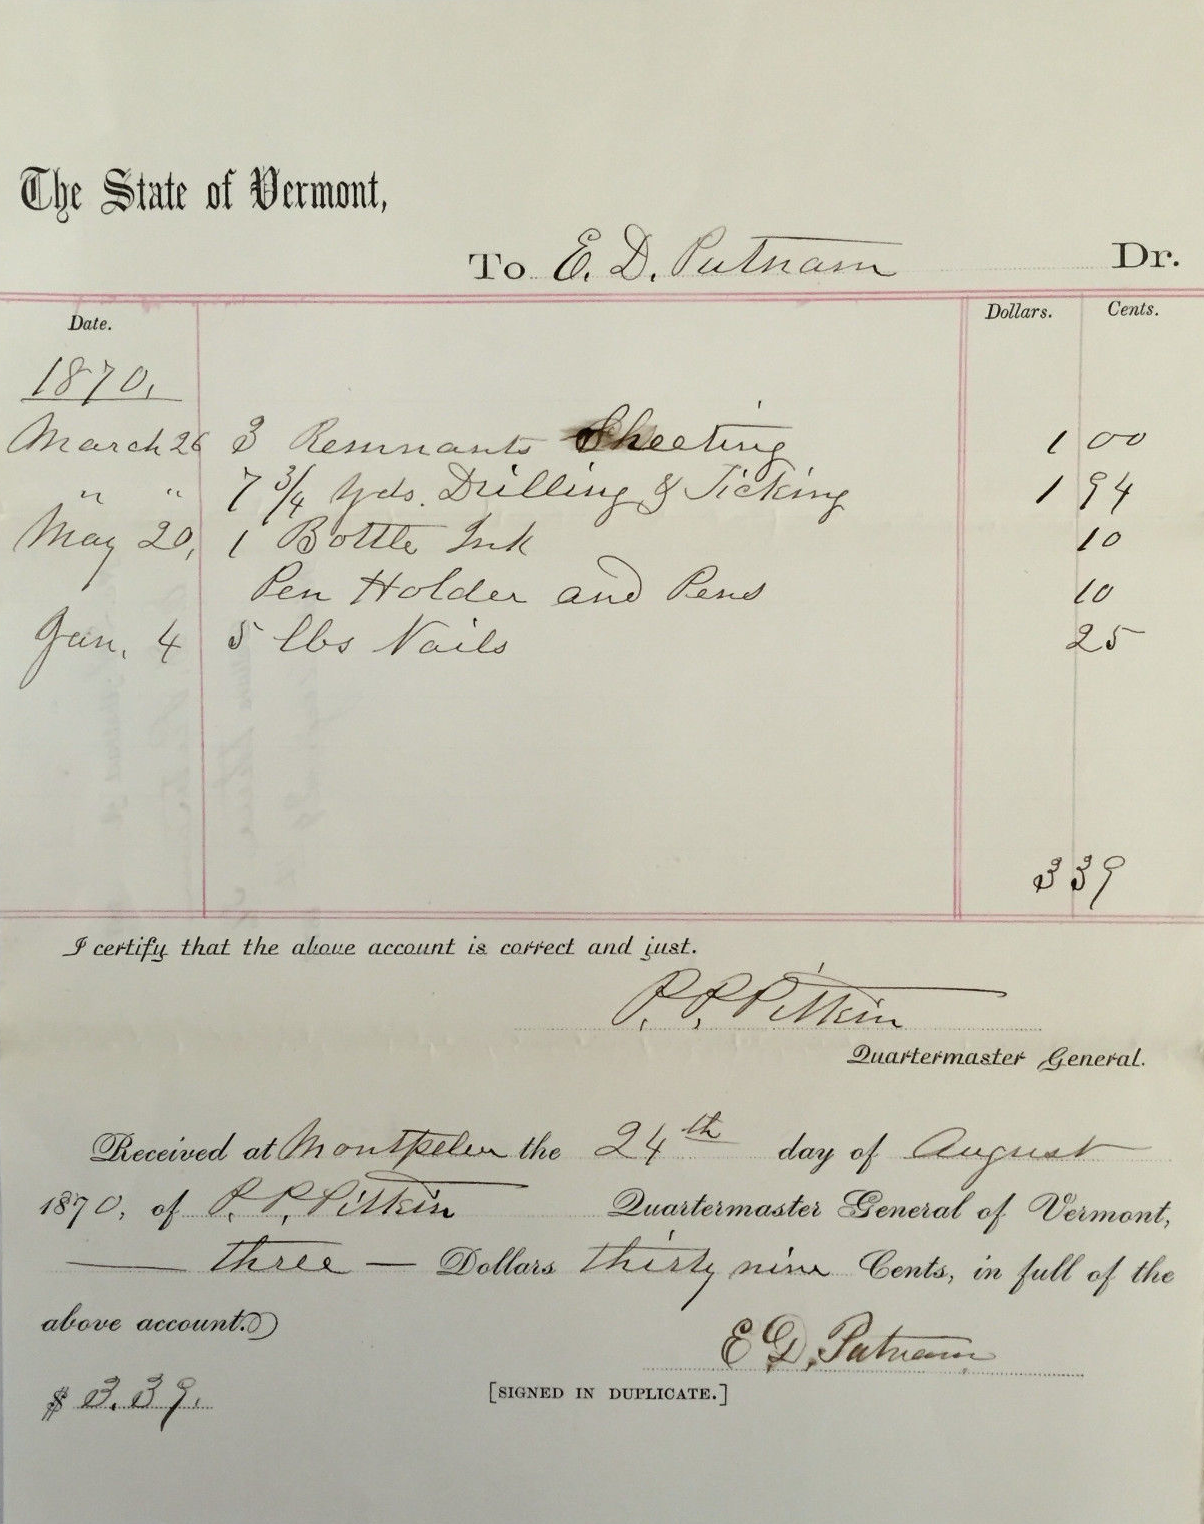 The State of Vermont,
To E. D. Putnam Dr.
Date. Dollars. Cents.
1870,
March 26 3 Remnants Sheeting 1 00
" " 7 3/4 yds. Drilling & Ticking 1 94
May 20, 1 Bottle Ink 10
Pen Holder and Pens 10
Jan. 4 5 lbs Nails 25
3 39
I certify that the above account is correct and just.
P. P. Pitkin
Quartermaster General.
Received at Montpelier the 24th day of August
1870, of P. P. Pitkin Quartermaster General of Vermont,
— three — Dollars thirty nine Cents, in full of the
above account.
E D. Putnam
$ 3.39.
[SIGNED IN DUPLICATE.]